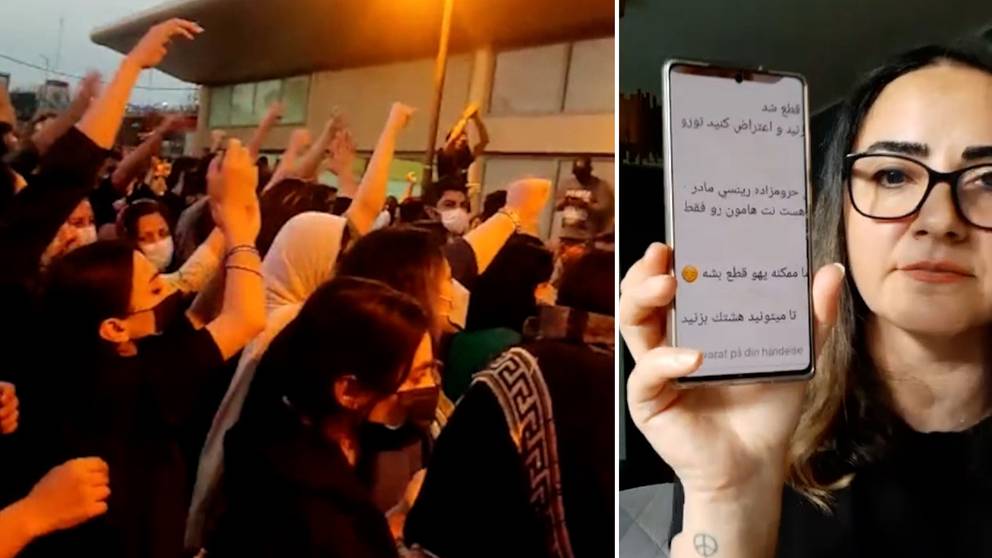 قطع شد
زنید و اعتراض کنید تورو
حرومزاده ریتسي مادر
هست نت هامون رو فقط
ما ممکنه یهو قطع بشه
تا میتونید هشتك بزنید
varat på din händelse